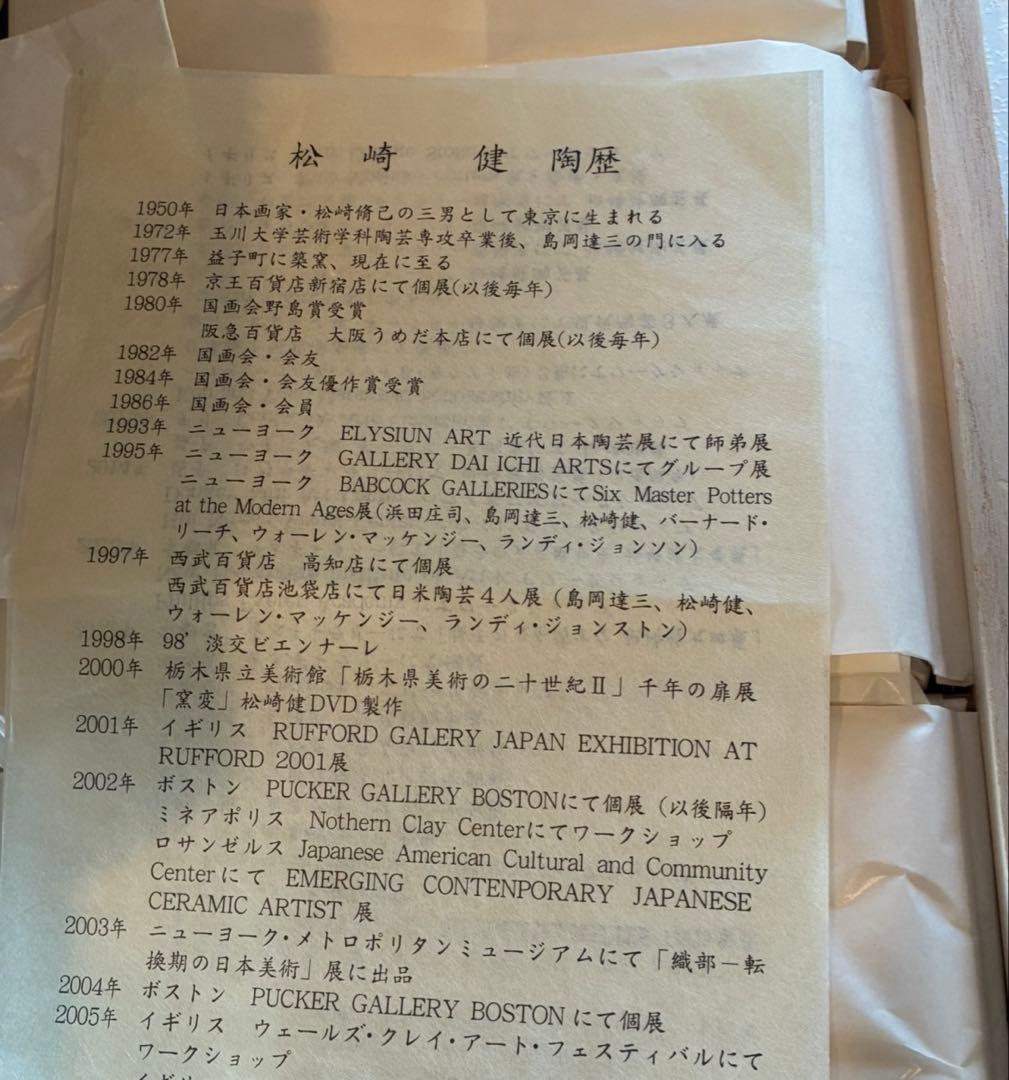 松 崎 健 陶歴
1950年 日本画家・松﨑脩己の三男として東京に生まれる
1972年 玉川大学芸術学科陶芸専攻卒業後、島岡達三の門に入る
1977年 益子町に築窯、現在に至る
1978年 京王百貨店新宿店にて個展(以後毎年)
1980年 国画会野島賞受賞
阪急百貨店 大阪うめだ本店にて個展(以後毎年)
1982年 国画会・会友
1984年 国画会・会友優作賞受賞
1986年 国画会・会員
1993年 ニューヨーク ELYSIUN ART 近代日本陶芸展にて師弟展
1995年 ニューヨーク GALLERY DAI ICHI ARTSにてグループ展
ニューヨーク BABCOCK GALLERIESにてSix Master Potters
at the Modern Ages展(浜田庄司、島岡達三、松崎健、バーナード・
リーチ、ウォーレン・マッケンジー、ランディ・ジョンソン)
1997年 西武百貨店 高知店にて個展
西武百貨店池袋店にて日米陶芸4人展(島岡達三、松崎健、
ウォーレン・マッケンジー、ランディ・ジョンストン)
1998年 98’淡交ビエンナーレ
2000年 栃木県立美術館「栃木県美術の二十世紀Ⅱ」千年の扉展
「窯変」松崎健DVD製作
2001年 イギリス RUFFORD GALERY JAPAN EXHIBITION AT
RUFFORD 2001展
2002年 ボストン PUCKER GALLERY BOSTONにて個展(以後隔年)
ミネアポリス Nothern Clay Centerにてワークショップ
ロサンゼルス Japanese American Cultural and Community
Centerにて EMERGING CONTENPORARY JAPANESE
CERAMIC ARTIST 展
2003年 ニューヨーク・メトロポリタンミュージアムにて「織部－転
換期の日本美術」展に出品
2004年 ボストン PUCKER GALLERY BOSTON にて個展
2005年 イギリス ウェールズ・クレイ・アート・フェスティバルにて
ワークショップ